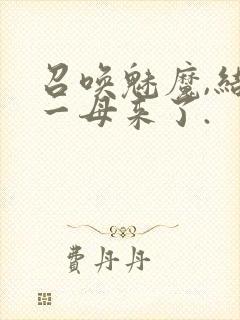 召唤魅魔,结
一母来了.
费丹丹